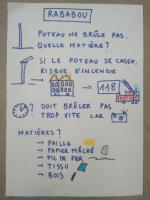 RABABOU
POTEAU NE BRÛLE PAS.
QUELLE MATIÈRE ?
SI LE POTEAU SE CASSE,
RISQUE D'INCENDIE
118
? DOIT BRÛLER PAS
TROP VITE CAR
MATIÈRES ?
→ PAILLE
→ PAPIER MÂCHÉ
→ FIL DE FER
→ TISSU
→ BOIS